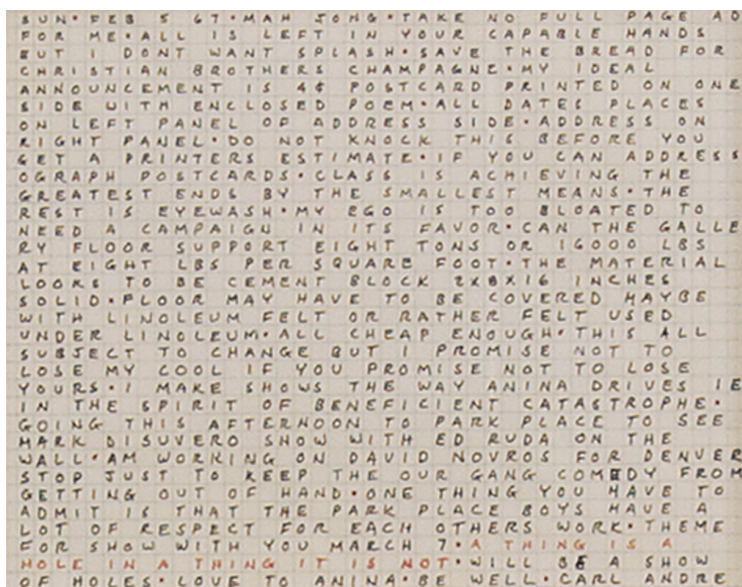 SUN·FEB 5 67·MAH JONG·TAKE NO FULL PAGE AD
FOR ME·ALL IS LEFT IN YOUR CAPABLE HANDS
BUT I DONT WANT SPLASH·SAVE THE BREAD FOR
CHRISTIAN BROTHERS CHAMPAGNE·MY IDEAL
ANNOUNCEMENT IS 4¢ POSTCARD PRINTED ON ONE
SIDE WITH ENCLOSED POEM·ALL DATES PLACES
ON LEFT PANEL OF ADDRESS SIDE·ADDRESS ON
RIGHT PANEL·DO NOT KNOCK THIS BEFORE YOU
GET A PRINTERS ESTIMATE·IF YOU CAN ADDRESS
OGRAPH POSTCARDS·CLASS IS ACHIEVING THE
GREATEST ENDS BY THE SMALLEST MEANS·THE
REST IS EYEWASH·MY EGO IS TOO BLOATED TO
NEED A CAMPAIGN IN ITS FAVOR·CAN THE GALLE
RY FLOOR SUPPORT EIGHT TONS OR 16000 LBS
AT EIGHT LBS PER SQUARE FOOT·THE MATERIAL
LOOKS TO BE CEMENT BLOCK 2X8X16 INCHES
SOLID·FLOOR MAY HAVE TO BE COVERED MAYBE
WITH LINOLEUM FELT OR RATHER FELT USED
UNDER LINOLEUM·ALL CHEAP ENOUGH·THIS ALL
SUBJECT TO CHANGE BUT I PROMISE NOT TO
LOSE MY COOL IF YOU PROMISE NOT TO LOSE
YOURS·I MAKE SHOWS THE WAY ANINA DRIVES IE
IN THE SPIRIT OF BENEFICIENT CATASTROPHE·
GOING THIS AFTERNOON TO PARK PLACE TO SEE
MARK DISUVERO SHOW WITH ED RUDA ON THE
WALL·AM WORKING ON DAVID NOVROS FOR DENVER
STOP JUST TO KEEP THE OUR GANG COMEDY FROM
GETTING OUT OF HAND·ONE THING YOU HAVE TO
ADMIT IS THAT THE PARK PLACE BOYS HAVE A
LOT OF RESPECT FOR EACH OTHERS WORK·THEME
FOR SHOW WITH YOU MARCH 7·A THING IS A
HOLE IN A THING IT IS NOT·WILL BE A SHOW
OF HOLES·LOVE TO ANINA·BE WELL·CARL ANDRE